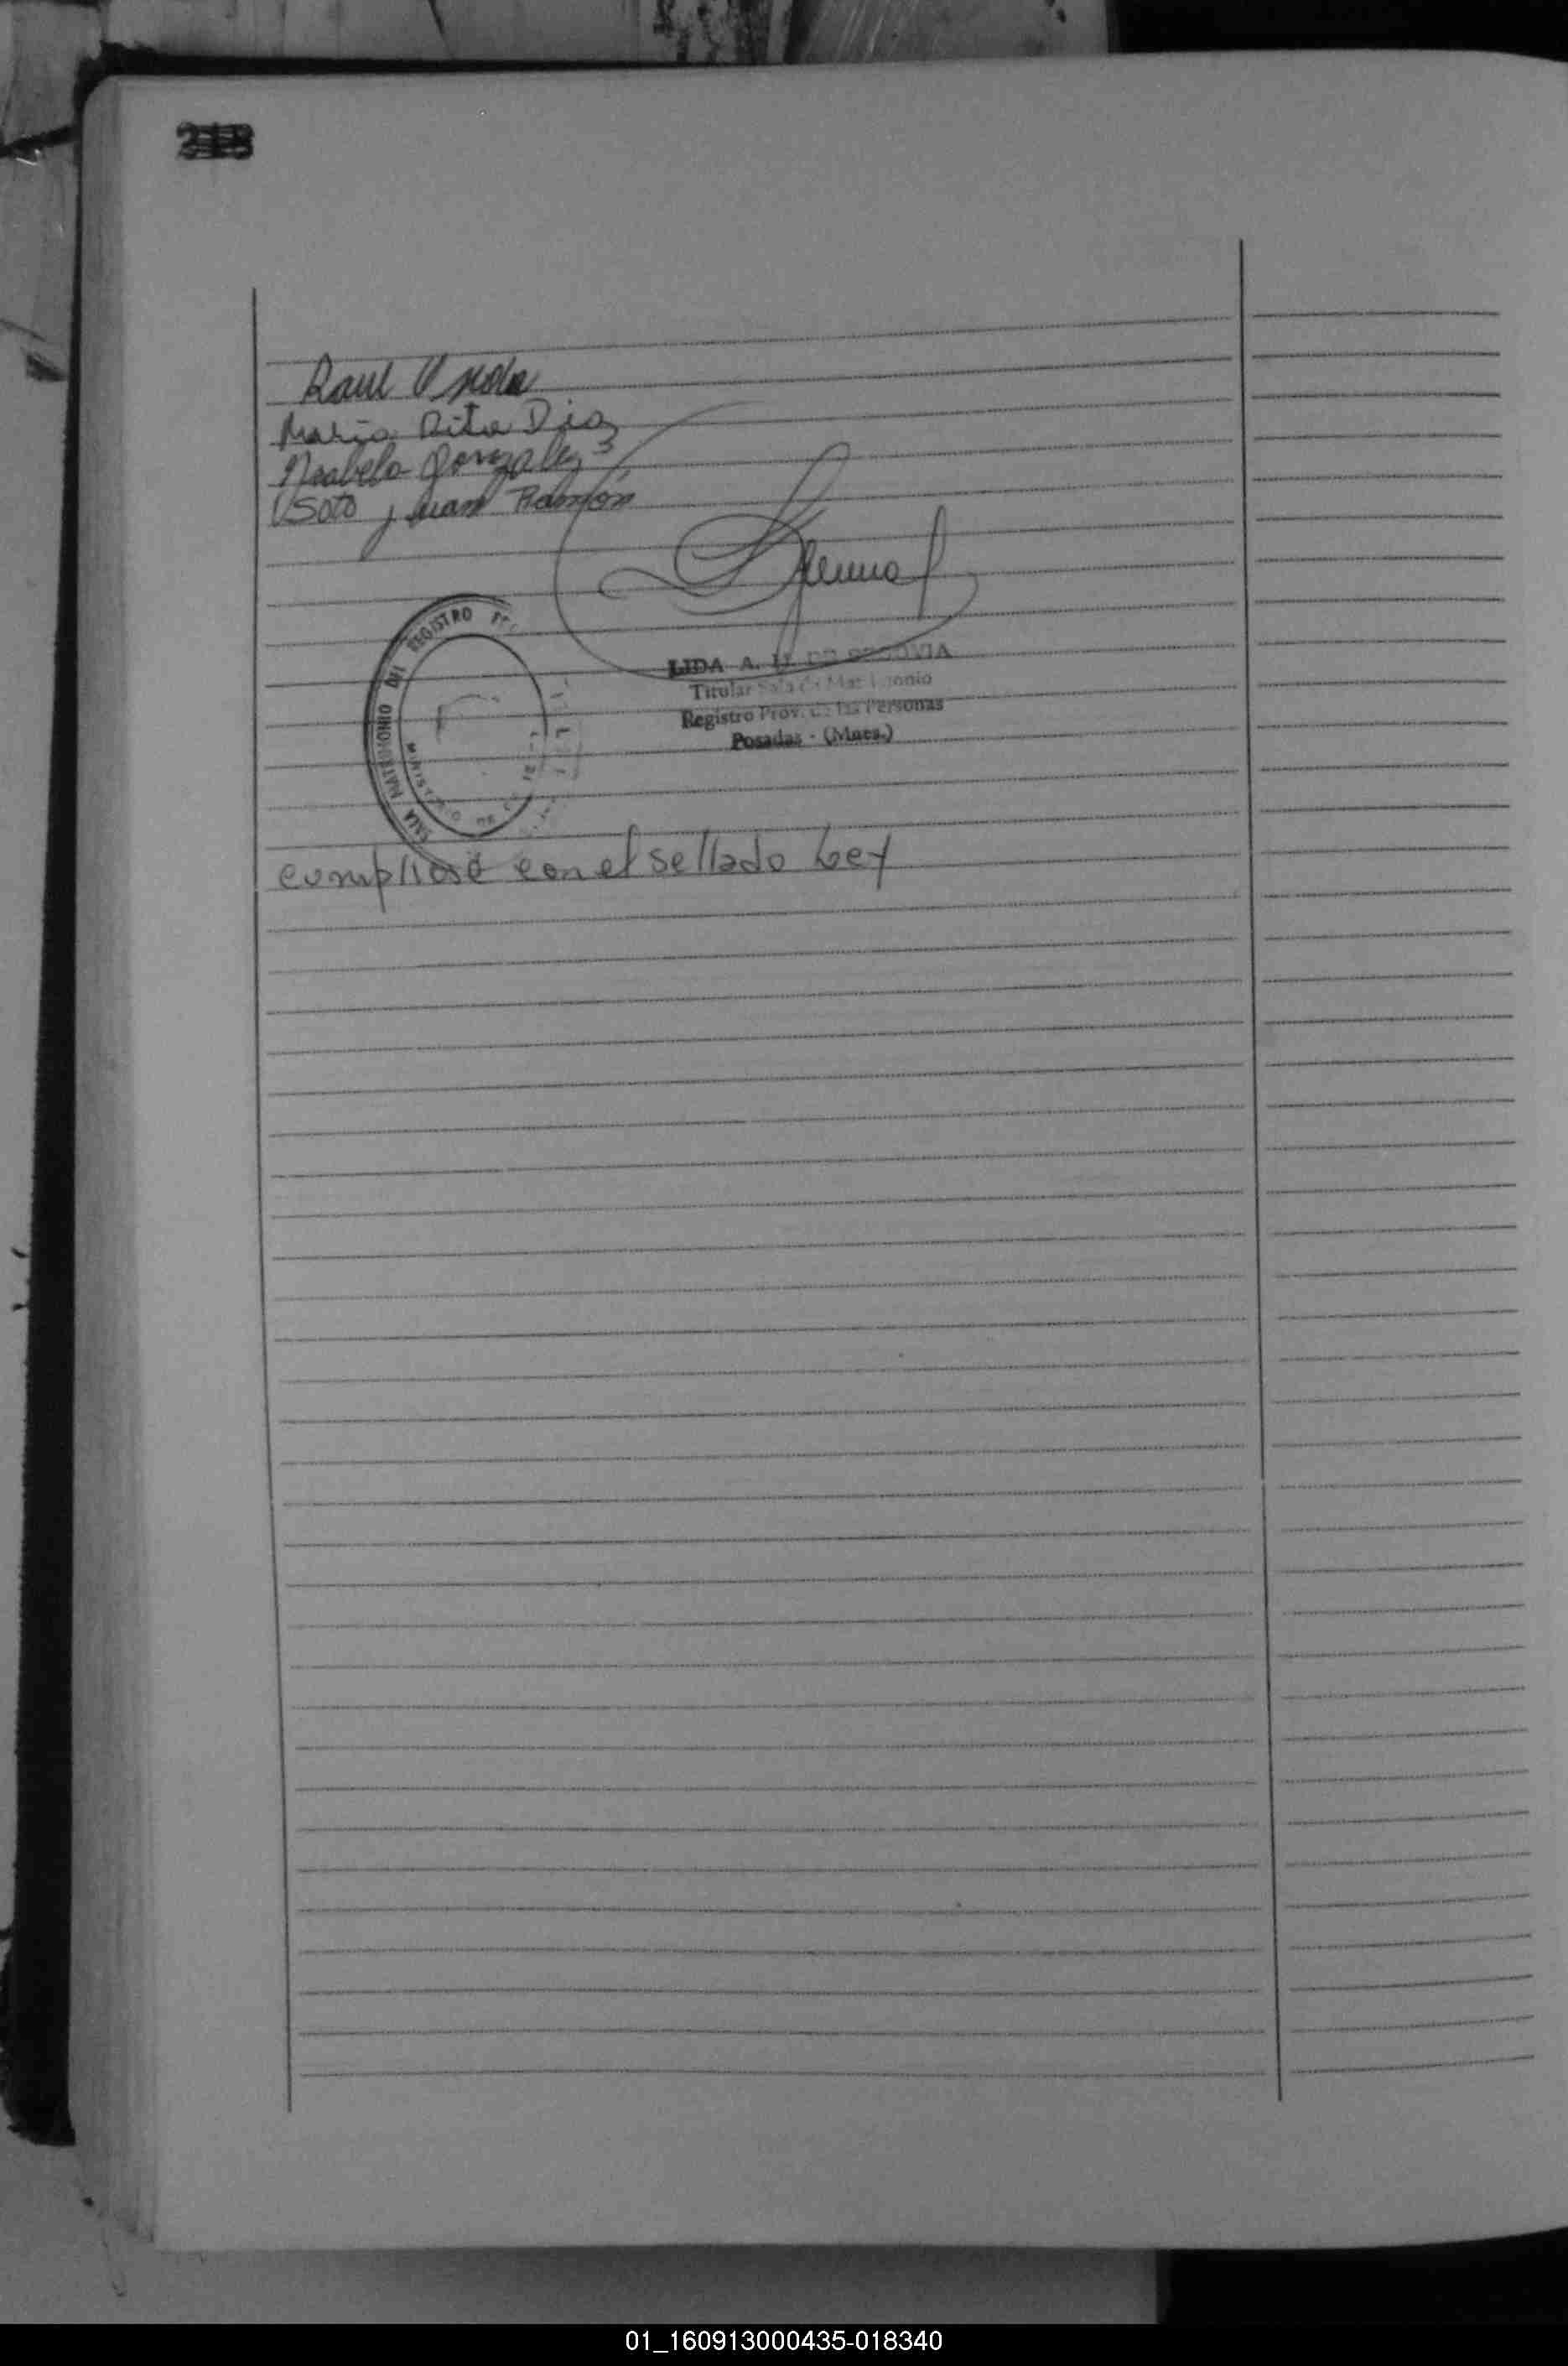 Raul
Maria Rita Diaz
Gonzalez
Soto Juan Ramón
SALA MATRIMONIO DEL REGISTRO
MINISTERIO DE
LIDA A.
Titular Sala de Matrimonio
Registro Prov. de las Personas
Posadas - (Mnes.)
cumpliose con el sellado Ley
01_160913000435-018340